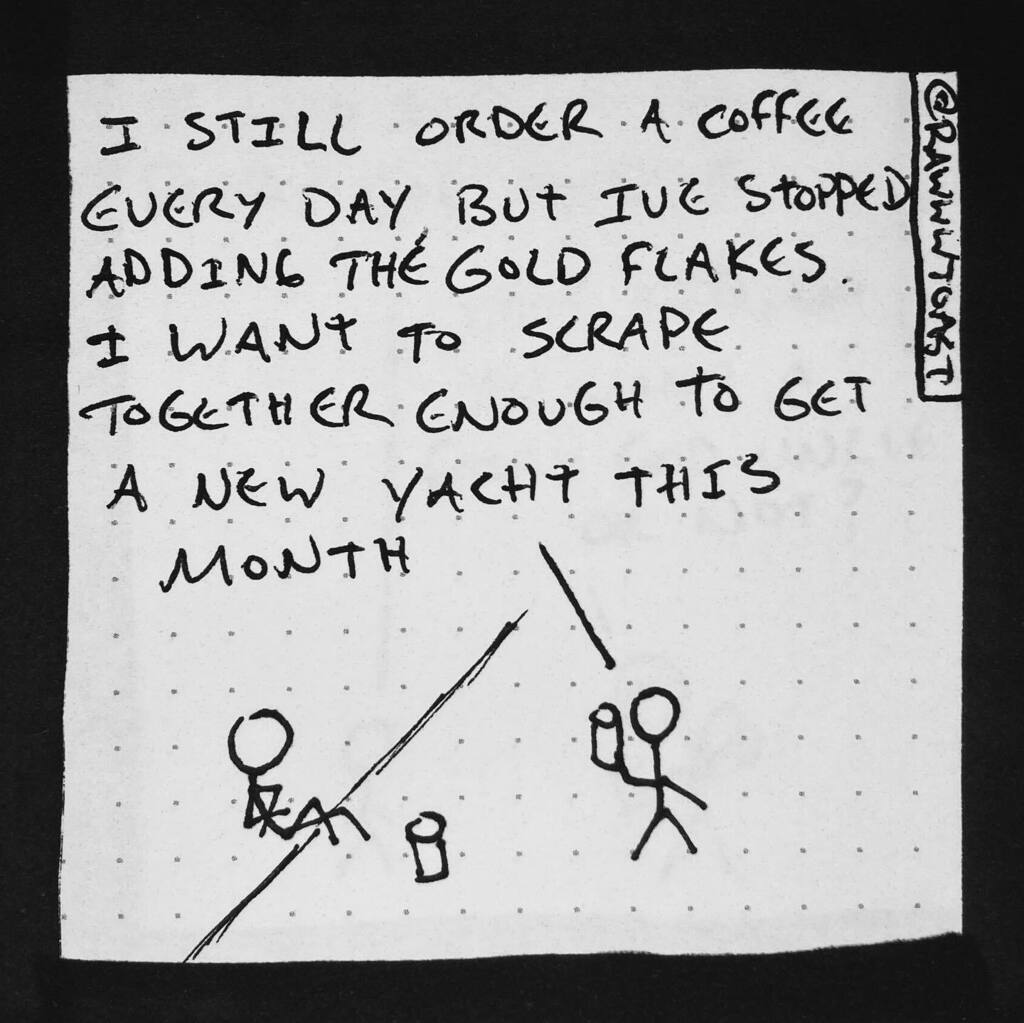 I STILL ORDER A COFFEE
EVERY DAY, BUT IVE STOPPED
ADDING THE GOLD FLAKES.
I WANT TO SCRAPE
TOGETHER ENOUGH TO GET
A NEW YACHT THIS
MONTH
@RAWWWTOAST